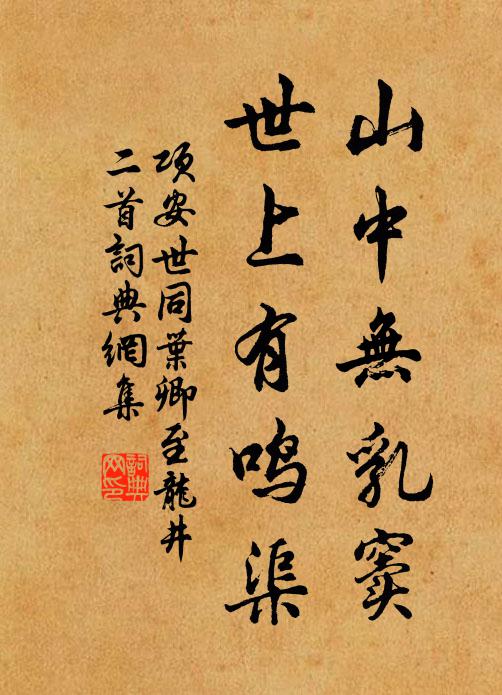 山中無乳竇
世上有鳴渠
項安世同葉卿至龍井
二首詞典網集
詞典
网印